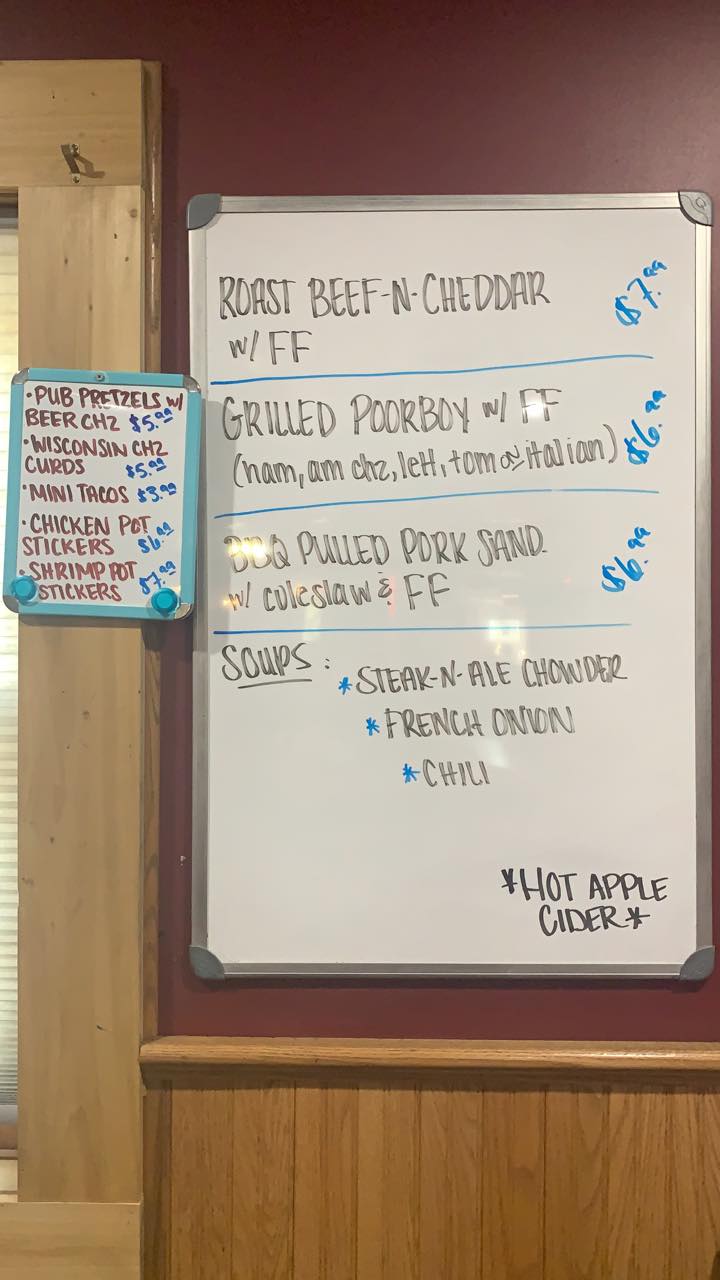 ·PUB PRETZELS W/
BEER CHZ $5.99
·WISCONSIN CHZ
CURDS $5.99
·MINI TACOS $3.99
·CHICKEN POT
STICKERS $6.99
·SHRIMP POT
STICKERS $7.99
ROAST BEEF-N-CHEDDAR $7.99
w/ FF
GRILLED POORBOY w/ FF
(ham, am chz, lett, tom or italian) $6.99
BBQ PULLED PORK SAND.
w/ coleslaw & FF $6.99
SOUPS:
*STEAK-N-ALE CHOWDER
*FRENCH ONION
*CHILI
*HOT APPLE
CIDER*